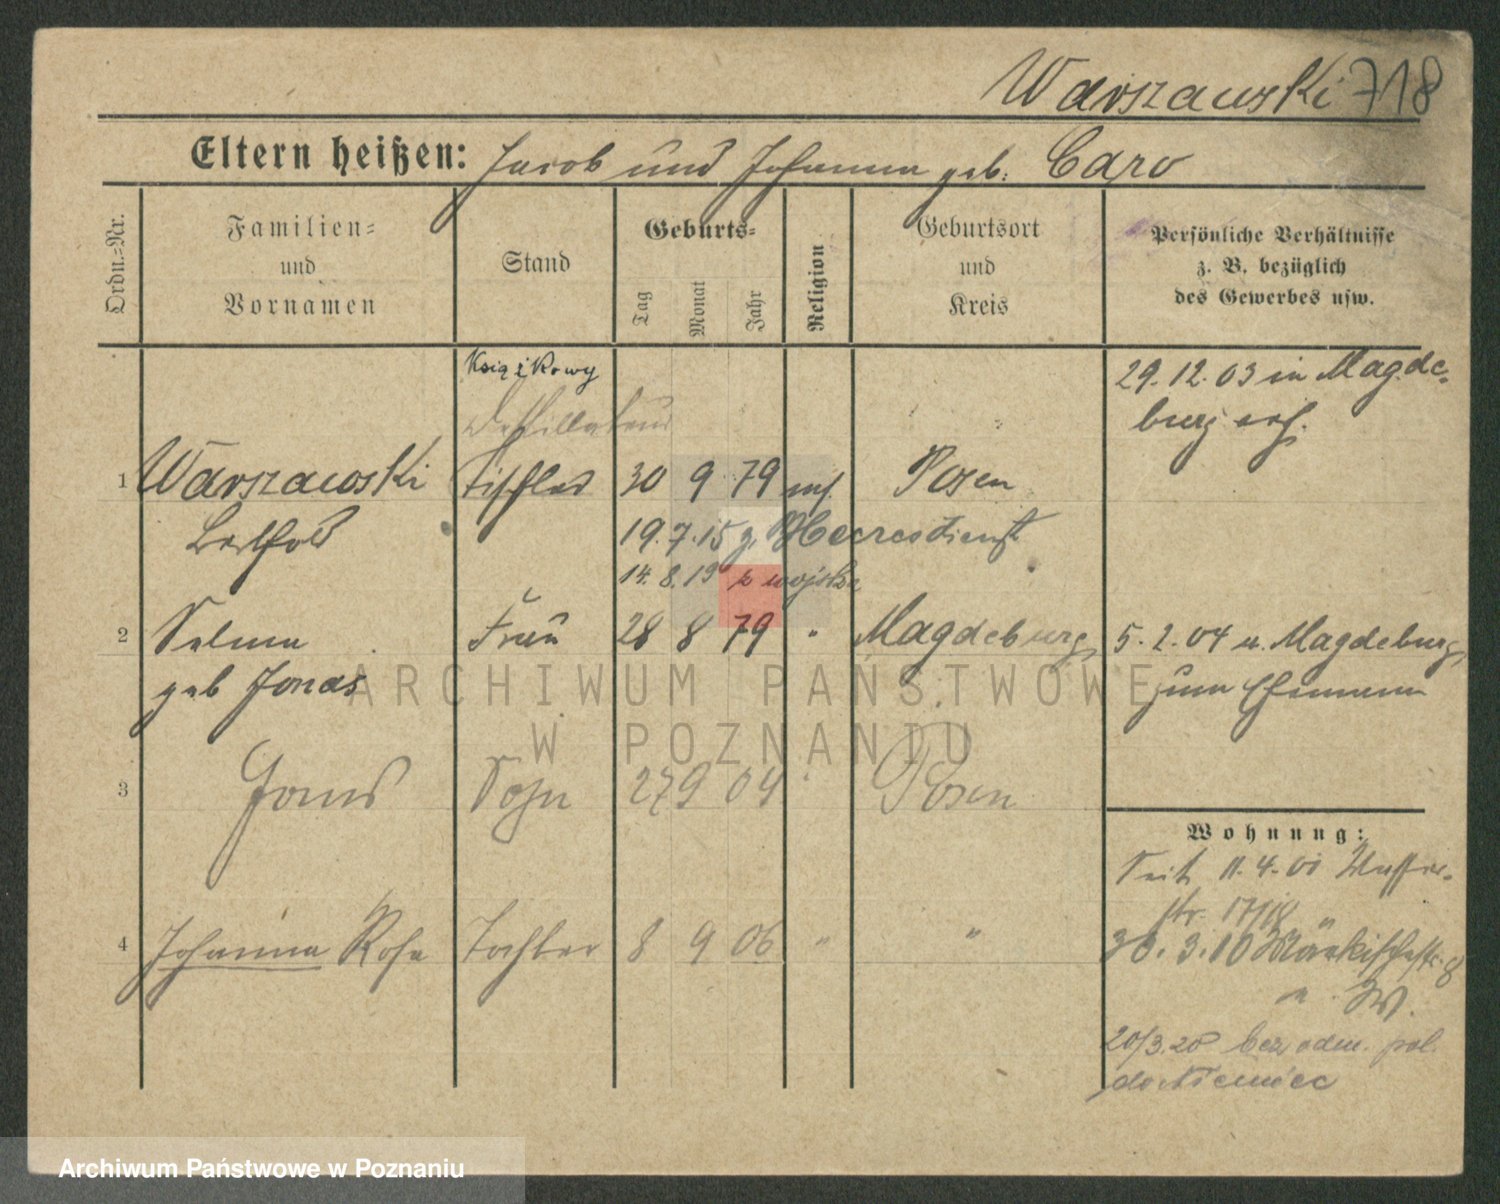 Warszawski 718
Eltern heißen: Jacob und Johanna geb. Caro
Ordn.-Nr.
Familien-
und
Vornamen
Stand
Geburts-
Tag
Monat
Jahr
Religion
Geburtsort
und
Kreis
Persönliche Verhältnisse
z. B. bezüglich
des Gewerbes usw.
Książkowy
Destillateur
29.12.03 in Magde-
burg
1 Warszawski Tischler 30 9 79 Posen
Berthold
19.7.15 z. Heeresdienst
14.8.19 z wojska
2 Selma Frau 28 8 79 " Magdeburg
geb Jonas
5.2.04 v. Magdeburg
zum Ehemann
3 Sohn 27 9 04 " Posen
4 Johanna Rosa Tochter 8 9 06 " "
Wohnung:
Seit 11.4.01 Wasser-
str. 17/18
30.3.10 Märkischestr. 8
20/3.20 bez odm. pol.
do Niemiec
ARCHIWUM PAŃSTWOWE
W POZNANIU
Archiwum Państwowe w Poznaniu